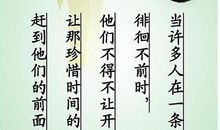 当许多人在一条
徘徊不前时，
他们不得不让开
让那珍惜时间的
赶到他们的前面